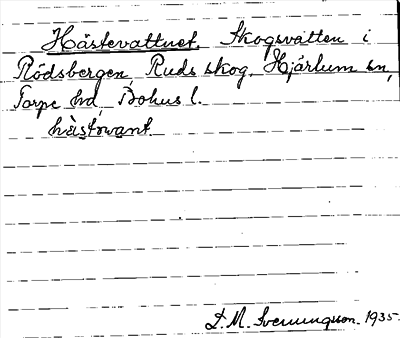 Hästevattnet. Skogsvatten i
Rödsbergen, Ruds skog, Hjärtum sn,
Torpe hd, Bohusl.
hàstəvant
D. M. Svenungsson. 1935.